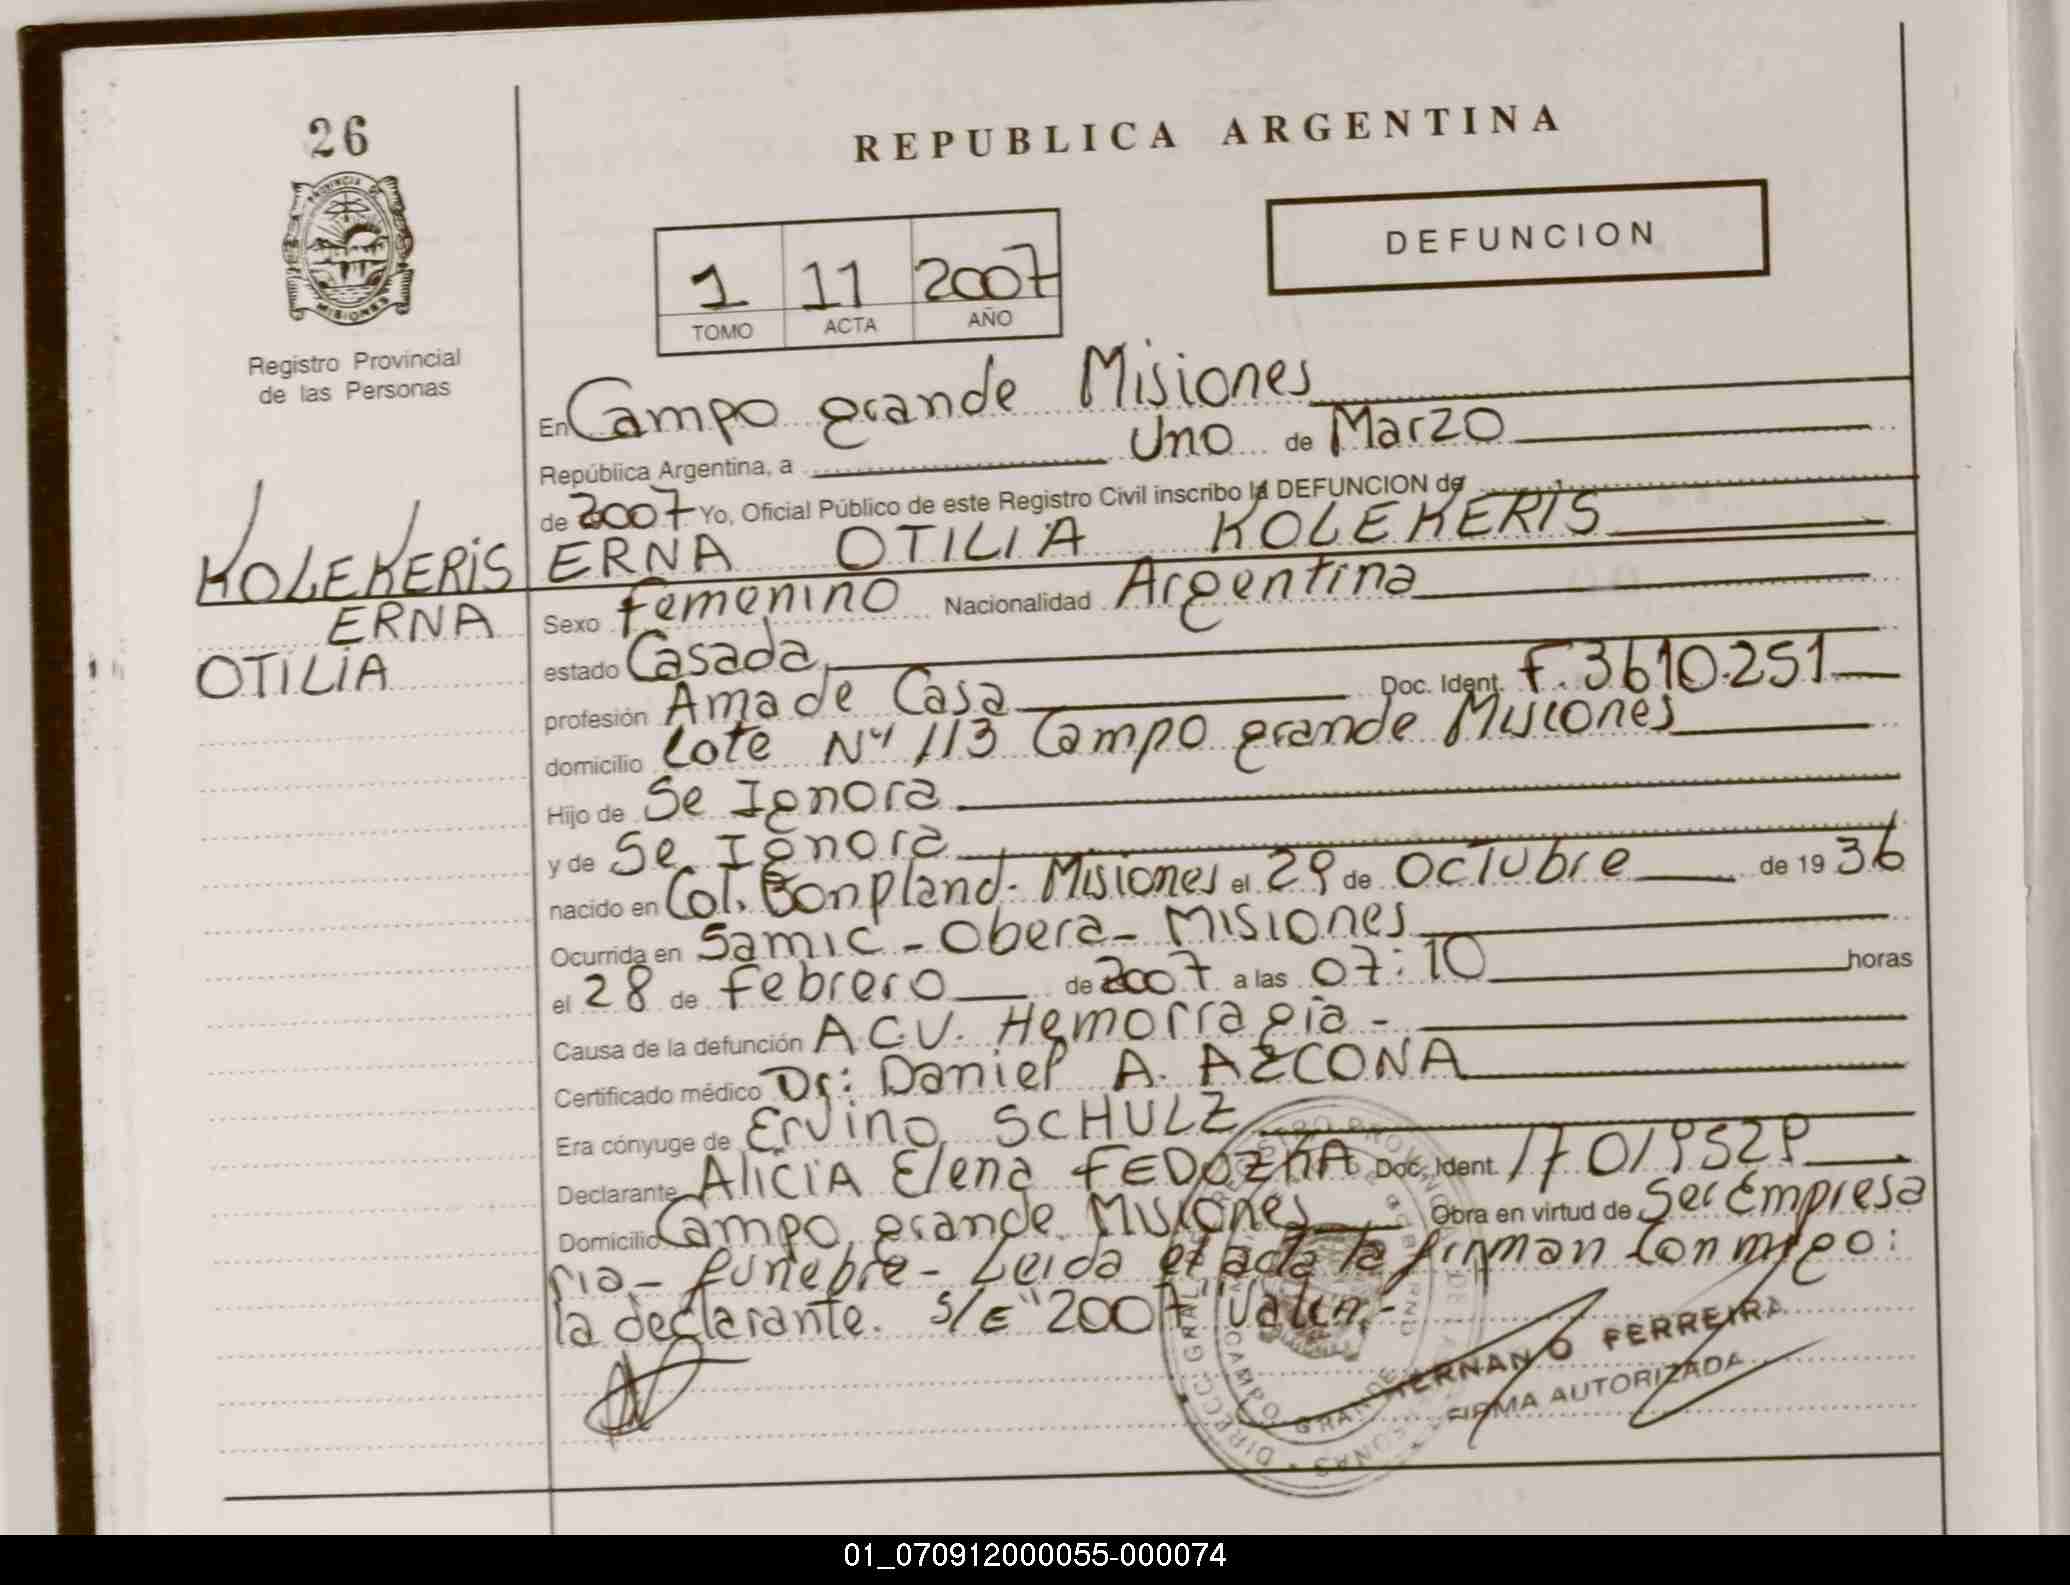 26
REPUBLICA ARGENTINA
PROVINCIA DE
MISIONES
Registro Provincial
de las Personas
DEFUNCION
1 11 2007
TOMO ACTA AÑO
En Campo grande Misiones
República Argentina, a Uno de Marzo
de 2007 Yo, Oficial Público de este Registro Civil inscribo la DEFUNCION de
KOLEKERIS
ERNA
OTILIA
ERNA OTILIA KOLEKERIS
Sexo Femenino Nacionalidad Argentina
estado Casada
profesión Ama de Casa Doc. Ident. F. 3610.251
domicilio Lote Nº 113 Campo grande Misiones
Hijo de Se Ignora
y de Se Ignora
nacido en Col. Bonpland - Misiones el 29 de Octubre de 19 36
Ocurrida en Samic - Obera - Misiones
el 28 de Febrero de 2007 a las 07:10 horas
Causa de la defunción A.C.V. Hemorragia -
Certificado médico Dr: Daniel A. AZCONA
Era cónyuge de Ervino SCHULZ
Declarante ALICIA Elena FEDOZKA Doc. Ident. 17019529
Domicilio Campo grande Misiones Obra en virtud de Ser Empresa
ria - funebre - Leida el acta la firman Conmigo:
la declarante. S/E "2007" Valen.-
HERNAN O FERREIRA
FIRMA AUTORIZADA
01_070912000055-000074